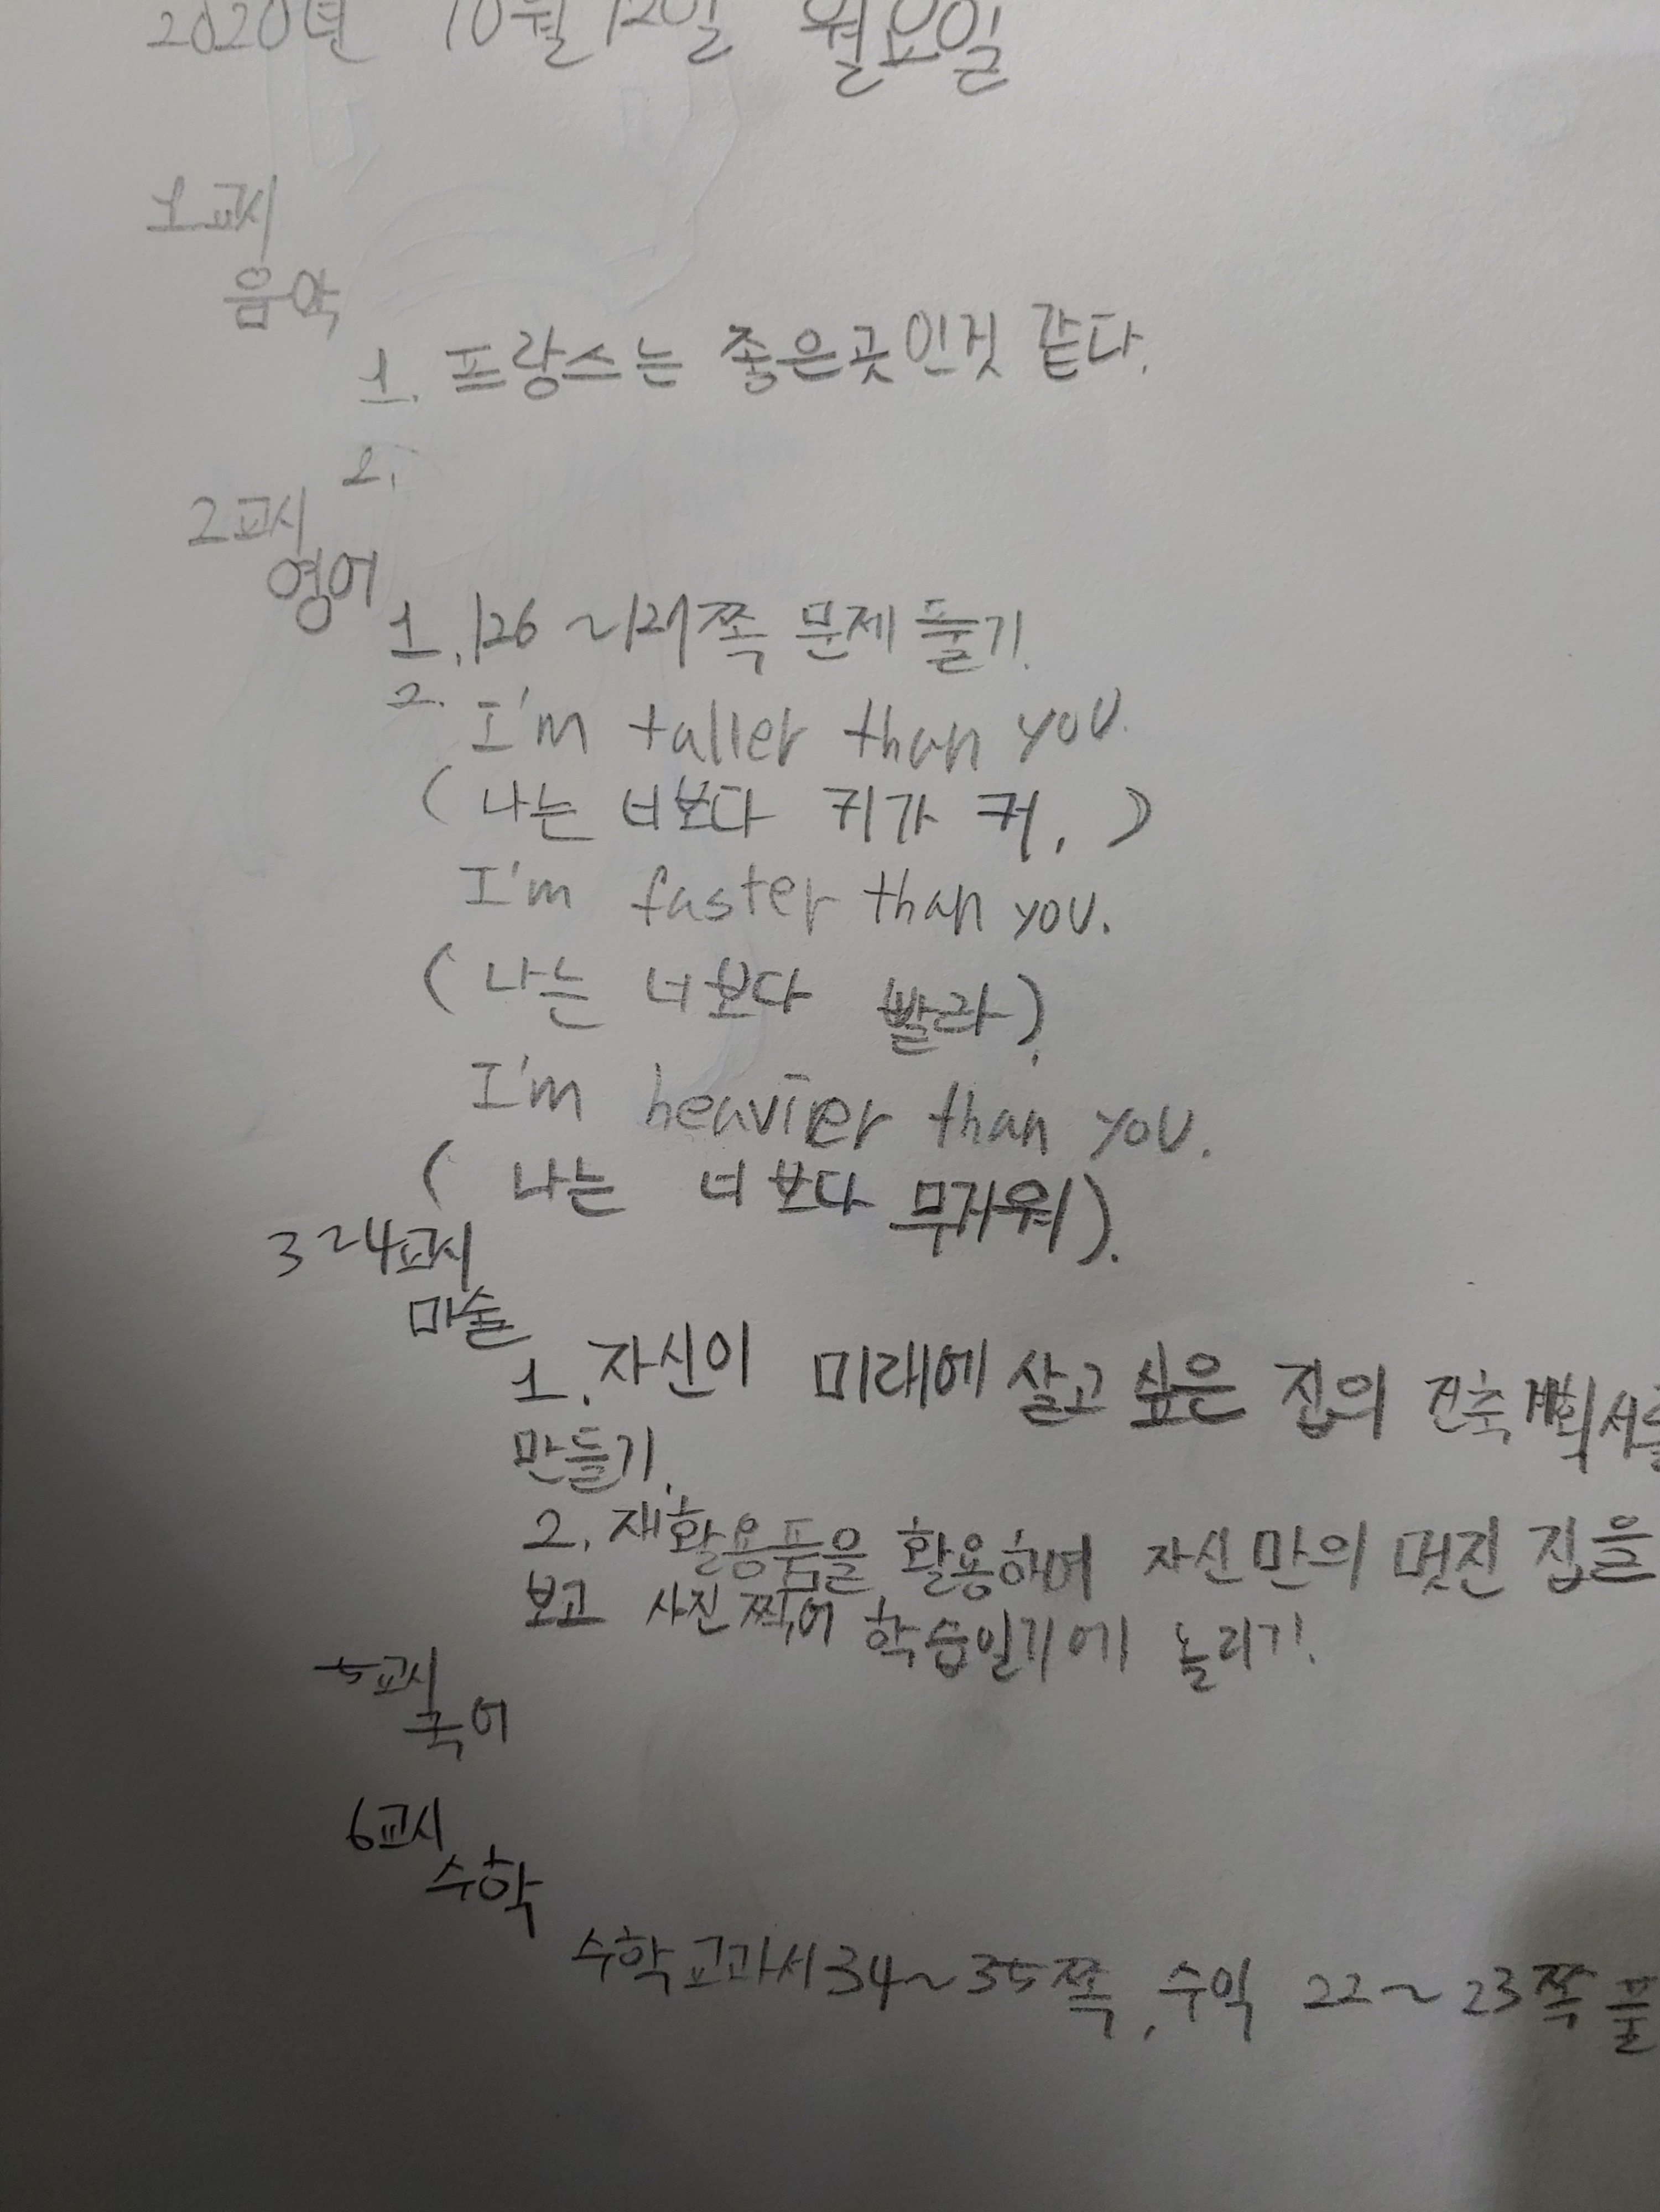 2020년 10월 12일 월요일
1교시
음악
1. 프랑스는 좋은곳인것 같다.
2.
2교시
영어
1. 126~127쪽 문제풀기.
2. I'm taller than you.
(나는 너보다 키가 커.)
I'm faster than you.
(나는 너보다 빨라).
I'm heavier than you.
(나는 너보다 무거워).
3~4교시
미술
1. 자신이 미래에 살고 싶은 집의 건축계획서를
만들기.
2. 재활용품을 활용하여 자신만의 멋진 집을
보고 사진찍어 학습일기에 놀리기.
5교시
국어
6교시
수학
수학교과서34~35쪽, 수익 22~23쪽 풀